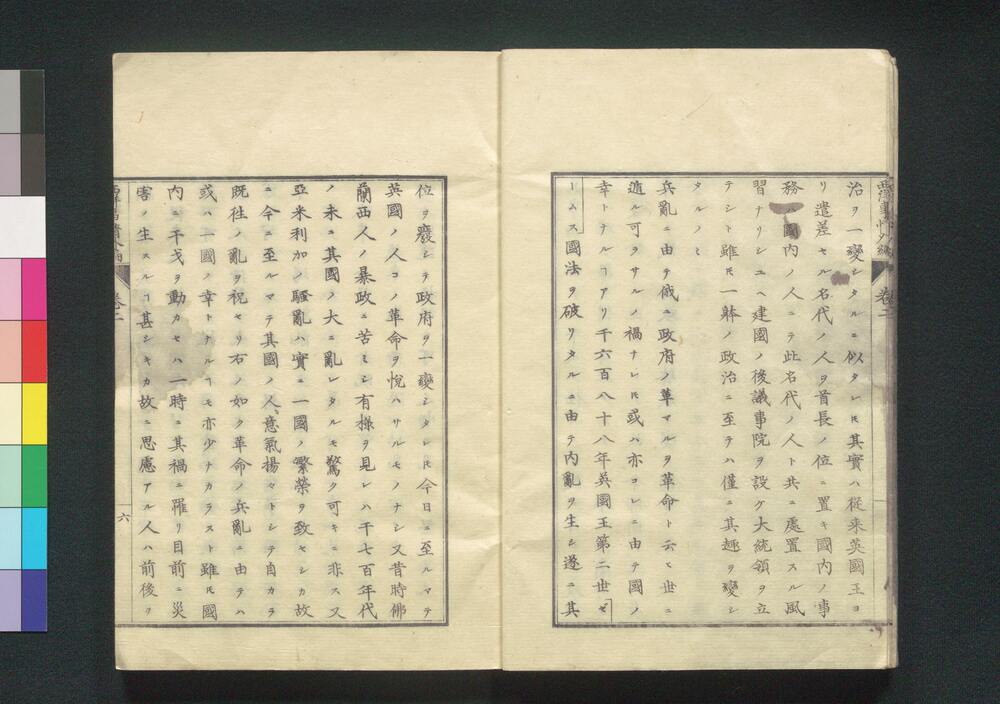 西洋事情外編
卷二
治ヲ一變シタルニ似タレ𪜈其實ハ從来英國王ヨ
リ遣差セル名代ノ人ヲ首長ノ位ニ置キ國内ノ事
務ハ國内ノ人ニテ此名代ノ人ト共ニ處置スル風
習ナリシユヘ建國ノ後議事院ヲ設ケ大統領ヲ立
テシト雖𪜈一躰ノ政治ニ至テハ僅ニ其趣ヲ變シ
タルノミ
兵亂ニ由テ俄ニ政府ノ革マルヲ革命ト云ヒ世ニ
遁ル可ラサルノ禍ナレ𪜈或ハ亦コレニ由テ國ノ
幸トナルヿアリ千六百八十八年英國王第二世ゼ
ームス國法ヲ破リタルニ由テ内亂ヲ生シ遂ニ其
位ヲ廢シテ政府ヲ一變シタレ𪜈今日ニ至ルマテ
英國ノ人コノ革命ヲ悅ハサルモノナシ又昔時佛
蘭西人ノ暴政ニ苦ミシ有様ヲ見レハ千七百年代
ノ末ニ其國ノ大ニ亂レタルモ驚ク可キニ非ス又
亞米利加ノ騷亂ハ實ニ一國ノ繁榮ヲ致セシカ故
ニ今ニ至ルマテ其國ノ人、意氣揚々トシテ自カラ
既徃ノ亂ヲ祝セリ右ノ如ク革命ノ兵亂ニ由テハ
或ハ一國ノ幸トナルヿモ亦少ナカラスト雖𪜈國
内ニ干戈ヲ動カセハ一時ニ其禍ニ罹リ目前ニ災
害ノ生スルヿ甚シキカ故ニ思慮アル人ハ前後ヲ
卷二
六